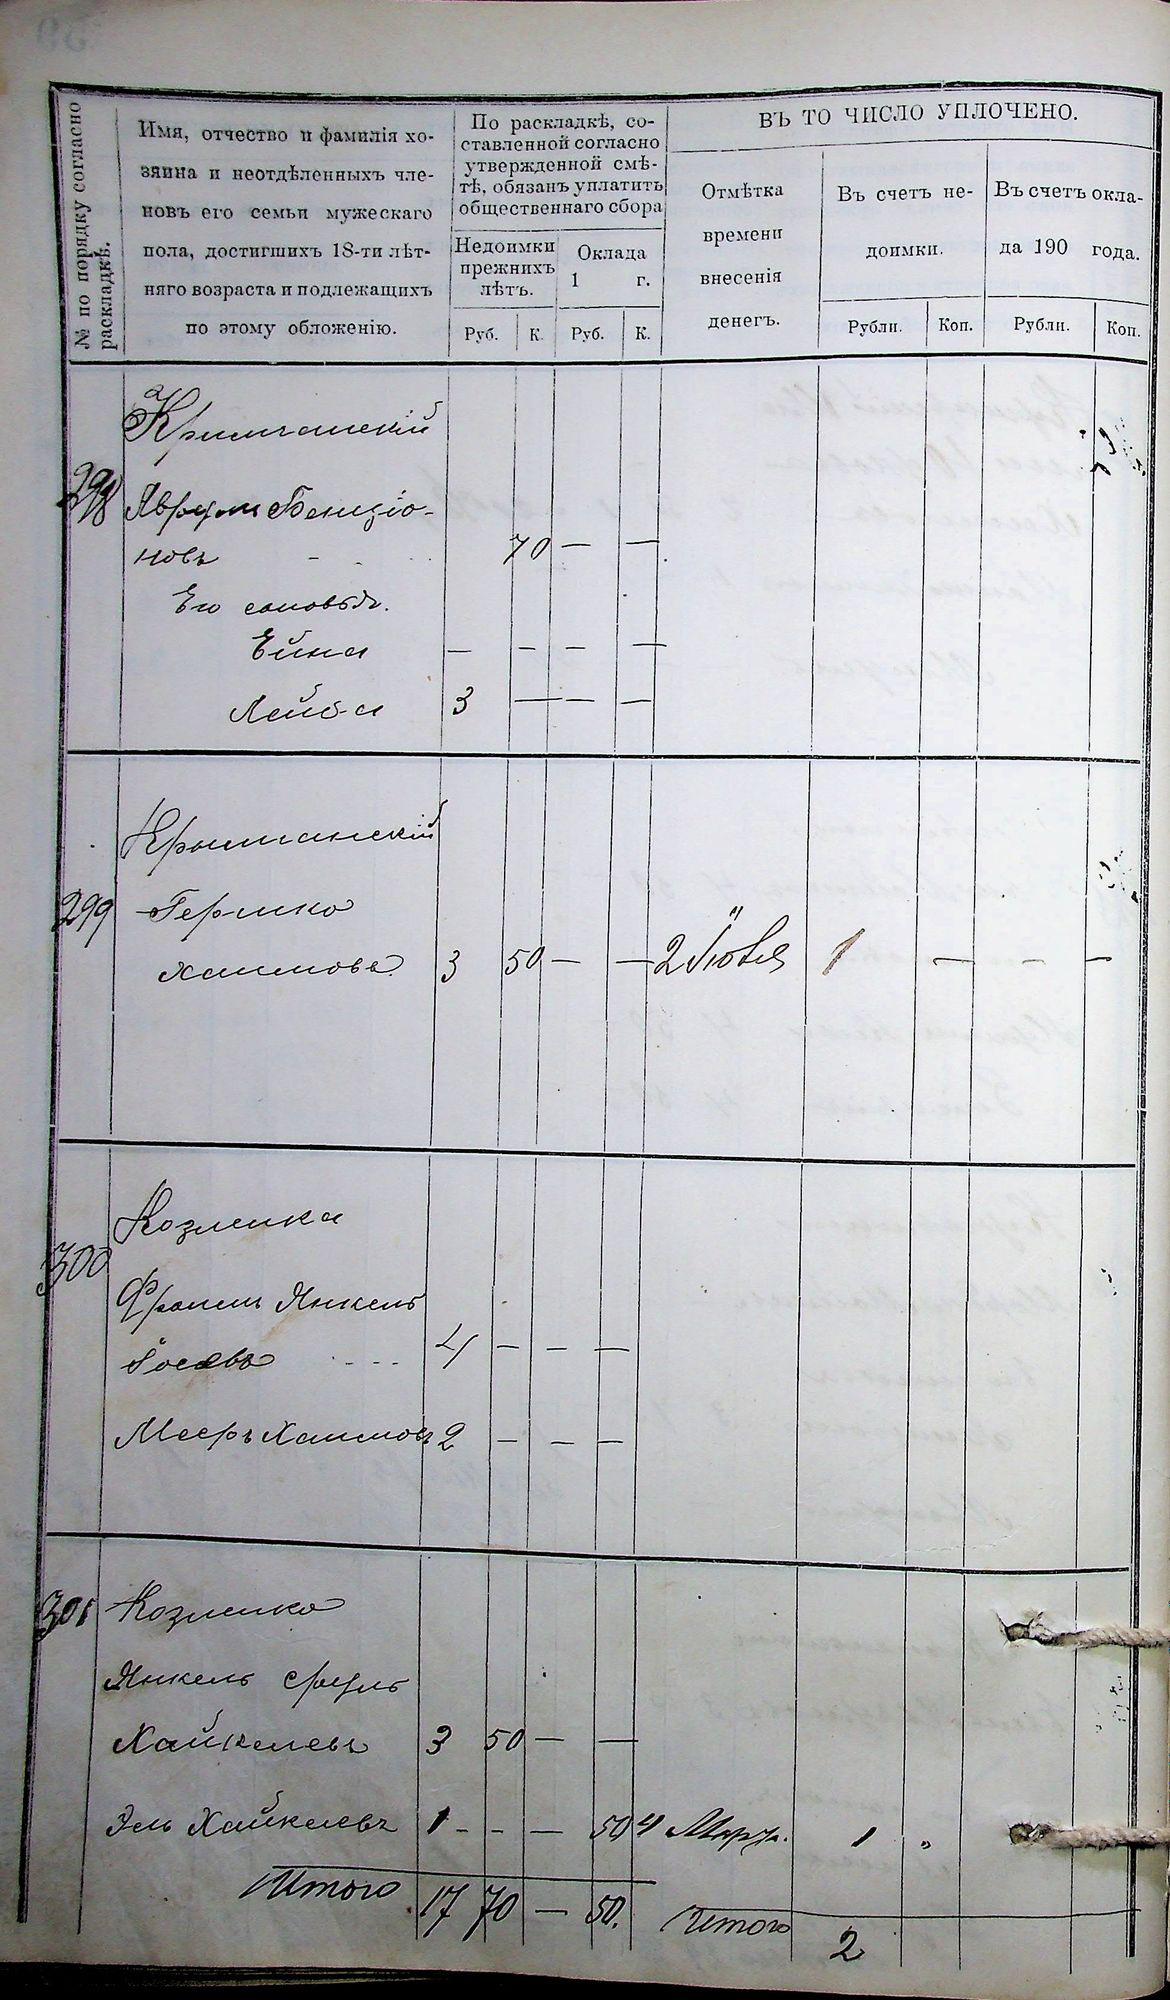 № по порядку согласно раскладкѣ.
Имя, отчество и фамилія хо-
зяина и неотдѣленныхъ чле-
новъ его семьи мужескаго
пола, достигшихъ 18-ти лѣт-
няго возраста и подлежащихъ
по этому обложенію.
По раскладкѣ, со-
ставленной согласно
утвержденной смѣ-
тѣ, обязанъ уплатить
общественнаго сбора
Недоимки прежнихъ лѣтъ.
Оклада 1 г.
Руб. К. Руб. К.
ВЪ ТО ЧИСЛО УПЛОЧЕНО.
Отмѣтка
времени
внесенія
денегъ.
Въ счетъ не-
доимки.
Рубли. Коп.
Въ счетъ окла-
да 190 года.
Рубли. Коп.
298
Аврумъ Бенціо-
новъ 70 — —
Его сыновья
Ейна — — — —
Лейба 3 — — —
Крыманскій
299 Гершко
Хаимовъ 3 50 — — 2 Іюля 1 — — —
300 Козленка
Фроимъ Янкель
Іосевъ 4 — — —
Мееръ Хаимовъ 2 — — —
301 Козленко
Янкель Сруль
Хайкелевъ 3 50 — —
Эль Хайкелевъ 1 - - — 50 4 Март. 1 "
Итого 17 70 — 50. Итого 2